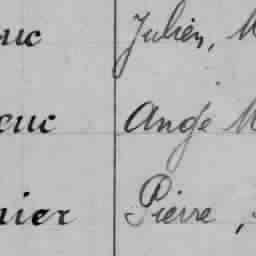 uc Julien, M
cuc Ange M
nier Pierre,